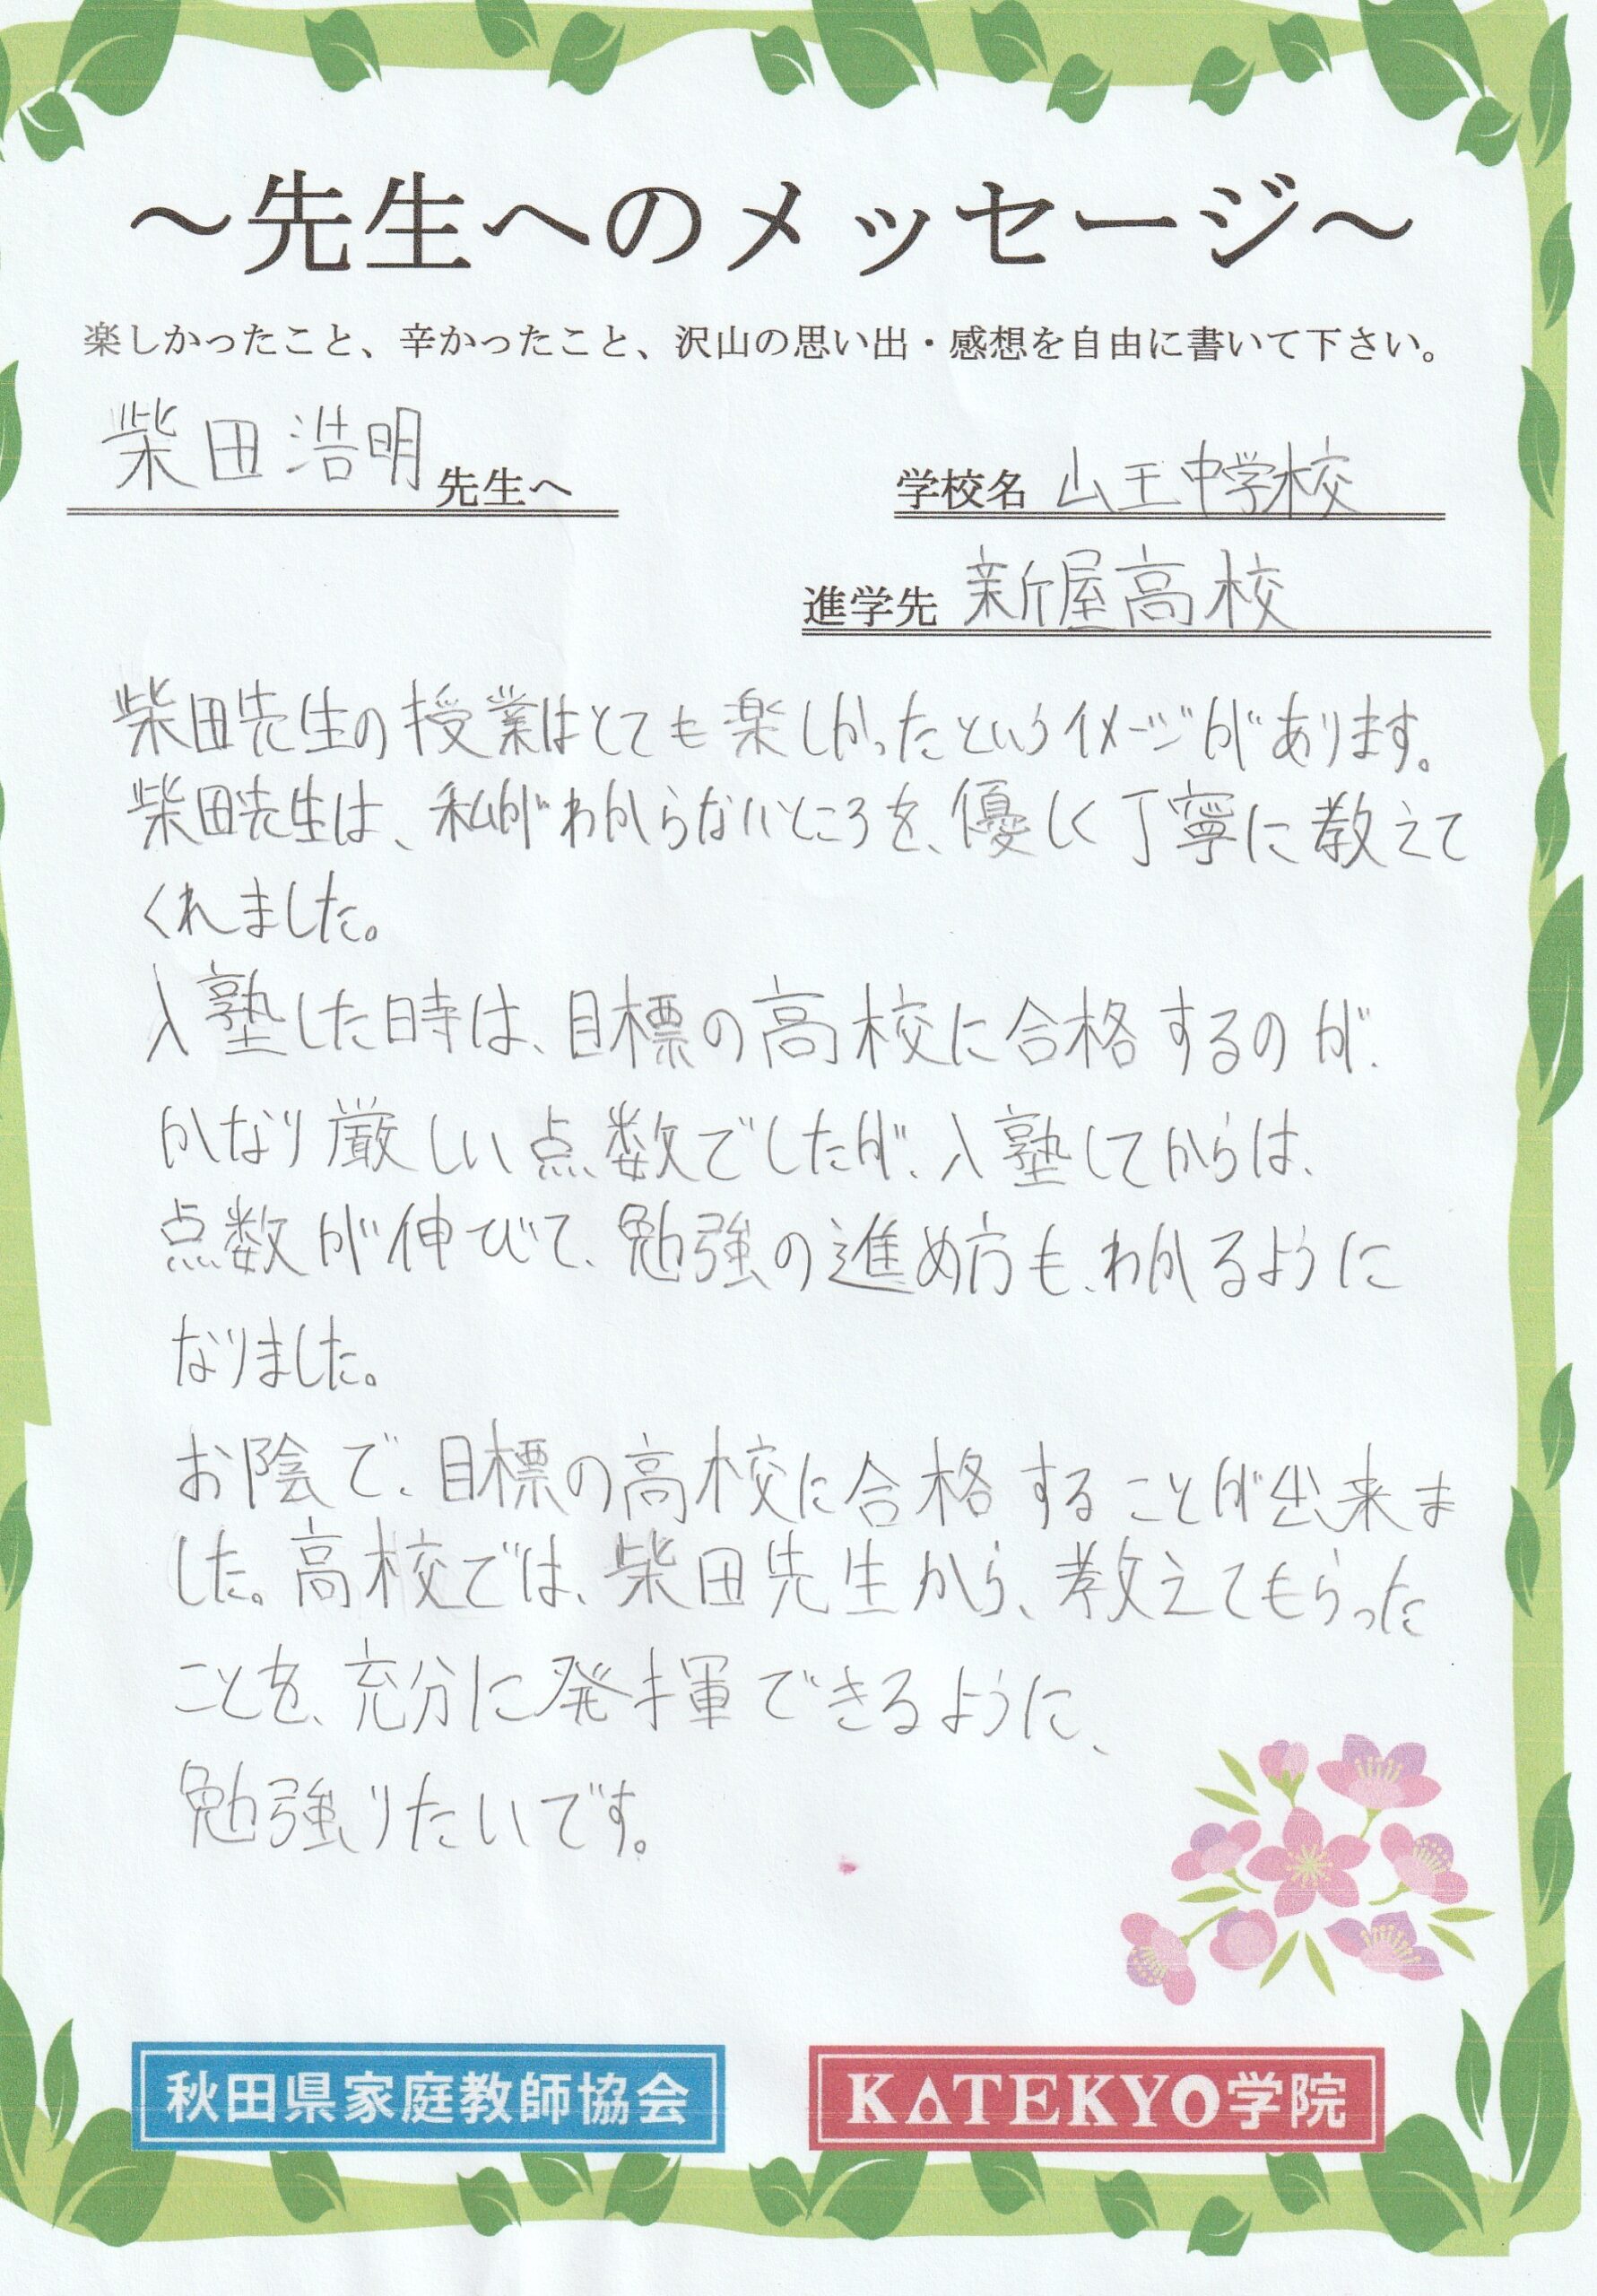 ～先生へのメッセージ～
楽しかったこと、辛かったこと、沢山の思い出・感想を自由に書いて下さい。
柴田浩明先生へ
学校名 山王中学校
進学先 新屋高校
柴田先生の授業はとても楽しかったというイメージがあります。
柴田先生は、私がわからないところを、優しく丁寧に教えて
くれました。
入塾した時は、目標の高校に合格するのが、
かなり厳しい点数でしたが、入塾してからは、
点数が伸びて、勉強の進め方も、わかるように
なりました。
お陰で、目標の高校に合格することが出来ま
した。高校では、柴田先生から、教えてもらった
ことを、充分に発揮できるように、
勉強りたいです。
秋田県家庭教師協会
KATEKYO学院